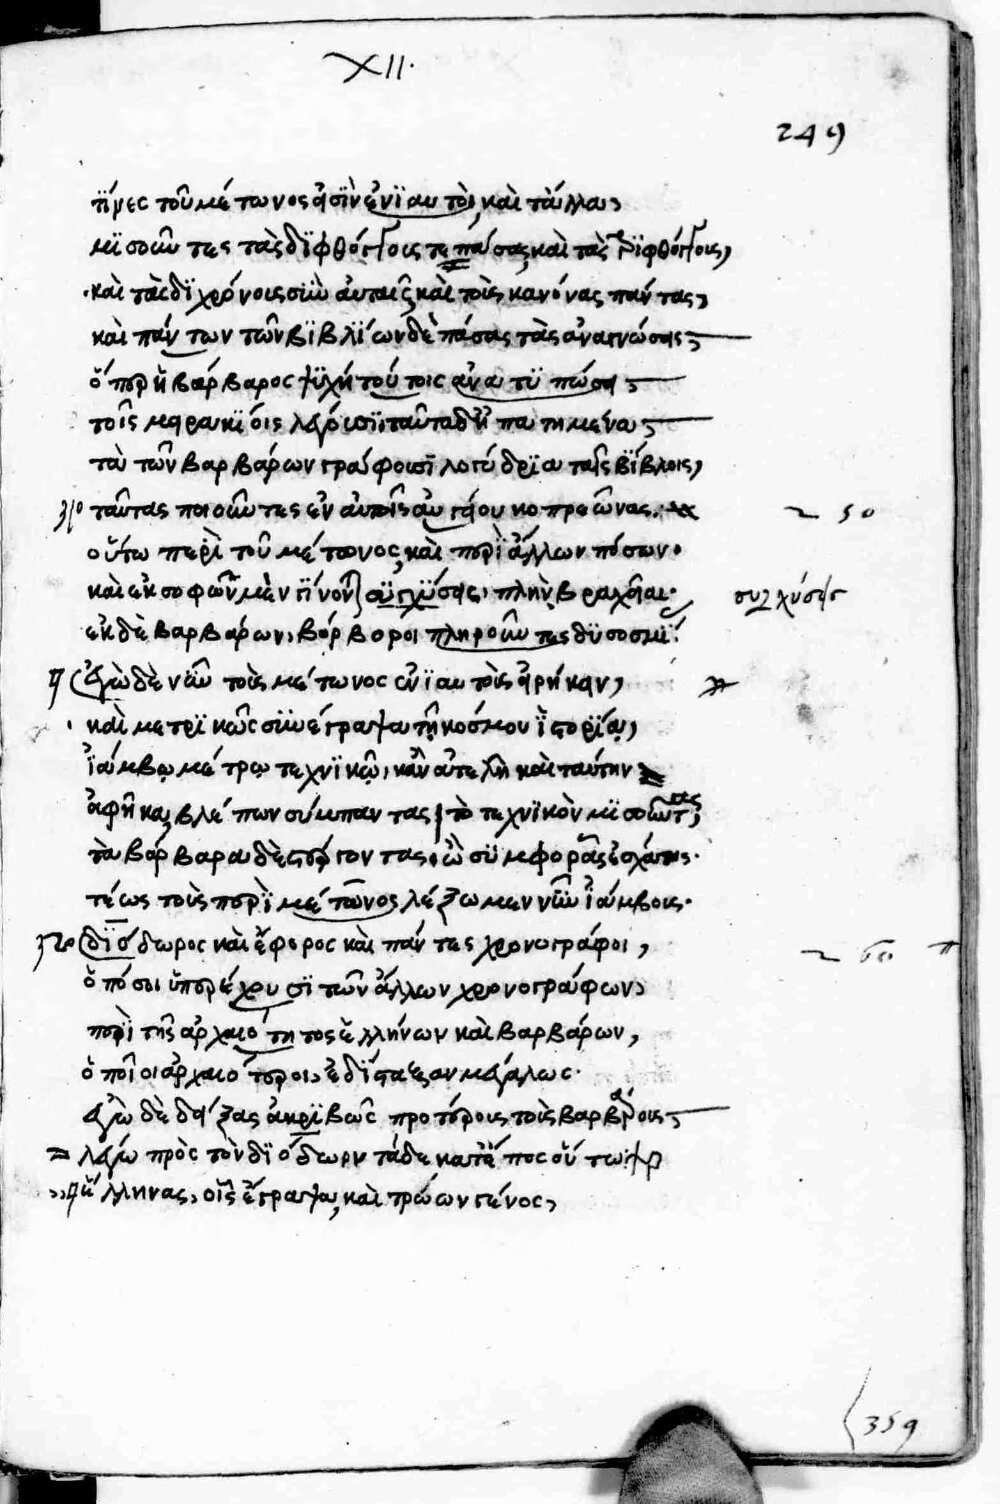 XII.
249
τίνες τοῦ μέτωνος εἰσὶν ἐνιαυτοὶ, καὶ τἆλλα,
μισοῦντες τὰς διφθόγγοις τε πάσας, καὶ τὰς διφθόγγοις,
καὶ τὰς διχρόνοις σὺν αὐταῖς καὶ τοὺς κανόνας πάντας,
καὶ πάντων τῶν βιβλίων δὲ πάσας τὰς ἀναγνώσεις,
ὅπερ ἡ βάρβαρος ψυχὴ τούτοις ἀνατυπώσει,
τοῖς μειρακίοις λέγουσι, ταῦτα δ' ἠπατημένα,
τὰ τῶν βαρβάρων γράφουσι λογύδρια ταῖς βίβλοις,
ταύτας ποιοῦντες ἐν αὐτοῖς αὐγείου κοπρεῶνας.
50
οὕτω περὶ τοῦ μέτωνος, καὶ περὶ ἄλλων πόσων.
καὶ ἐκ σοφῶν μὲν συγχύσεις, πλὴν βραχεῖαι.
συγχύσεις
ἐκ δὲ βαρβάρων, βόρβοροι πληροῦντες δυσοσμί
ἐγὼ δὲ νῦν τοὺς μέτωνος ἐνιαυτοὺς εἰρήκειν,
καὶ μετρικῶς συνέγραψα τῇ κόσμου ἱστορίᾳ,
ἰάμβῳ μέτρῳ τεχνικῷ, κἂν ἀτελῆ καὶ ταύτην
ἀφῆκα, βλέπων σύμπαντας τὸ τεχνικὸν μισοῦντας,
τὰ βάρβαρα δὲ στέργοντας, ὢ συμφορᾶς ἐσχάτης.
τέως τοὺς περὶ μέτωνος λέξωμεν νῦν ἰάμβους.
διόδωρος καὶ ἔφορος καὶ πάντες χρονογράφοι,
ὁπόσοι ὑπερέχουσι τῶν ἄλλων χρονογράφων,
περὶ τῆς ἀρχαιότητος ἑλλήνων καὶ βαρβάρων,
ὁποῖοι ἀρχαιότεροι, ἐδίσταξαν μεγάλως.
ἐγὼ δὲ δείξας ἀκριβῶς προτέροις τοὺς βαρβάροις,
λέγω πρὸς τὸν διόδωρον τάδε κατέπος οὕτω
ἕλληνας, οἷς ἔγραψα, καὶ τρώων γένος,
359